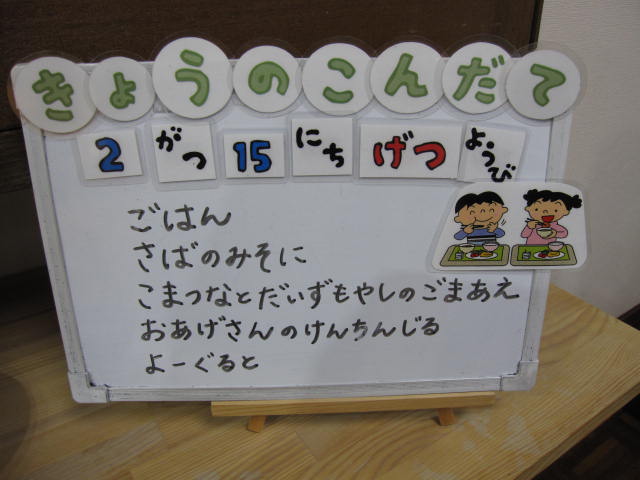 きょうのこんだて
2 がつ 15 にち げつ ようび
ごはん
さばのみそに
こまつなとだいずもやしのごまあえ
おあげさんのけんちんじる
よーぐると